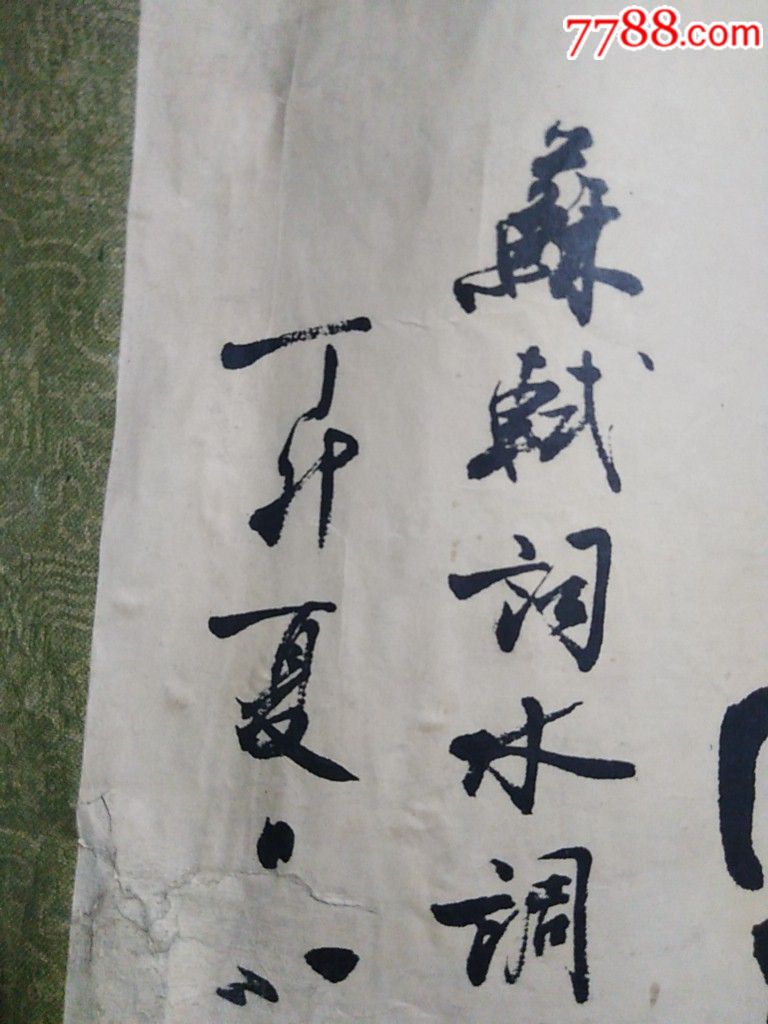 7788.com
蘇軾词水调
丁卯夏日